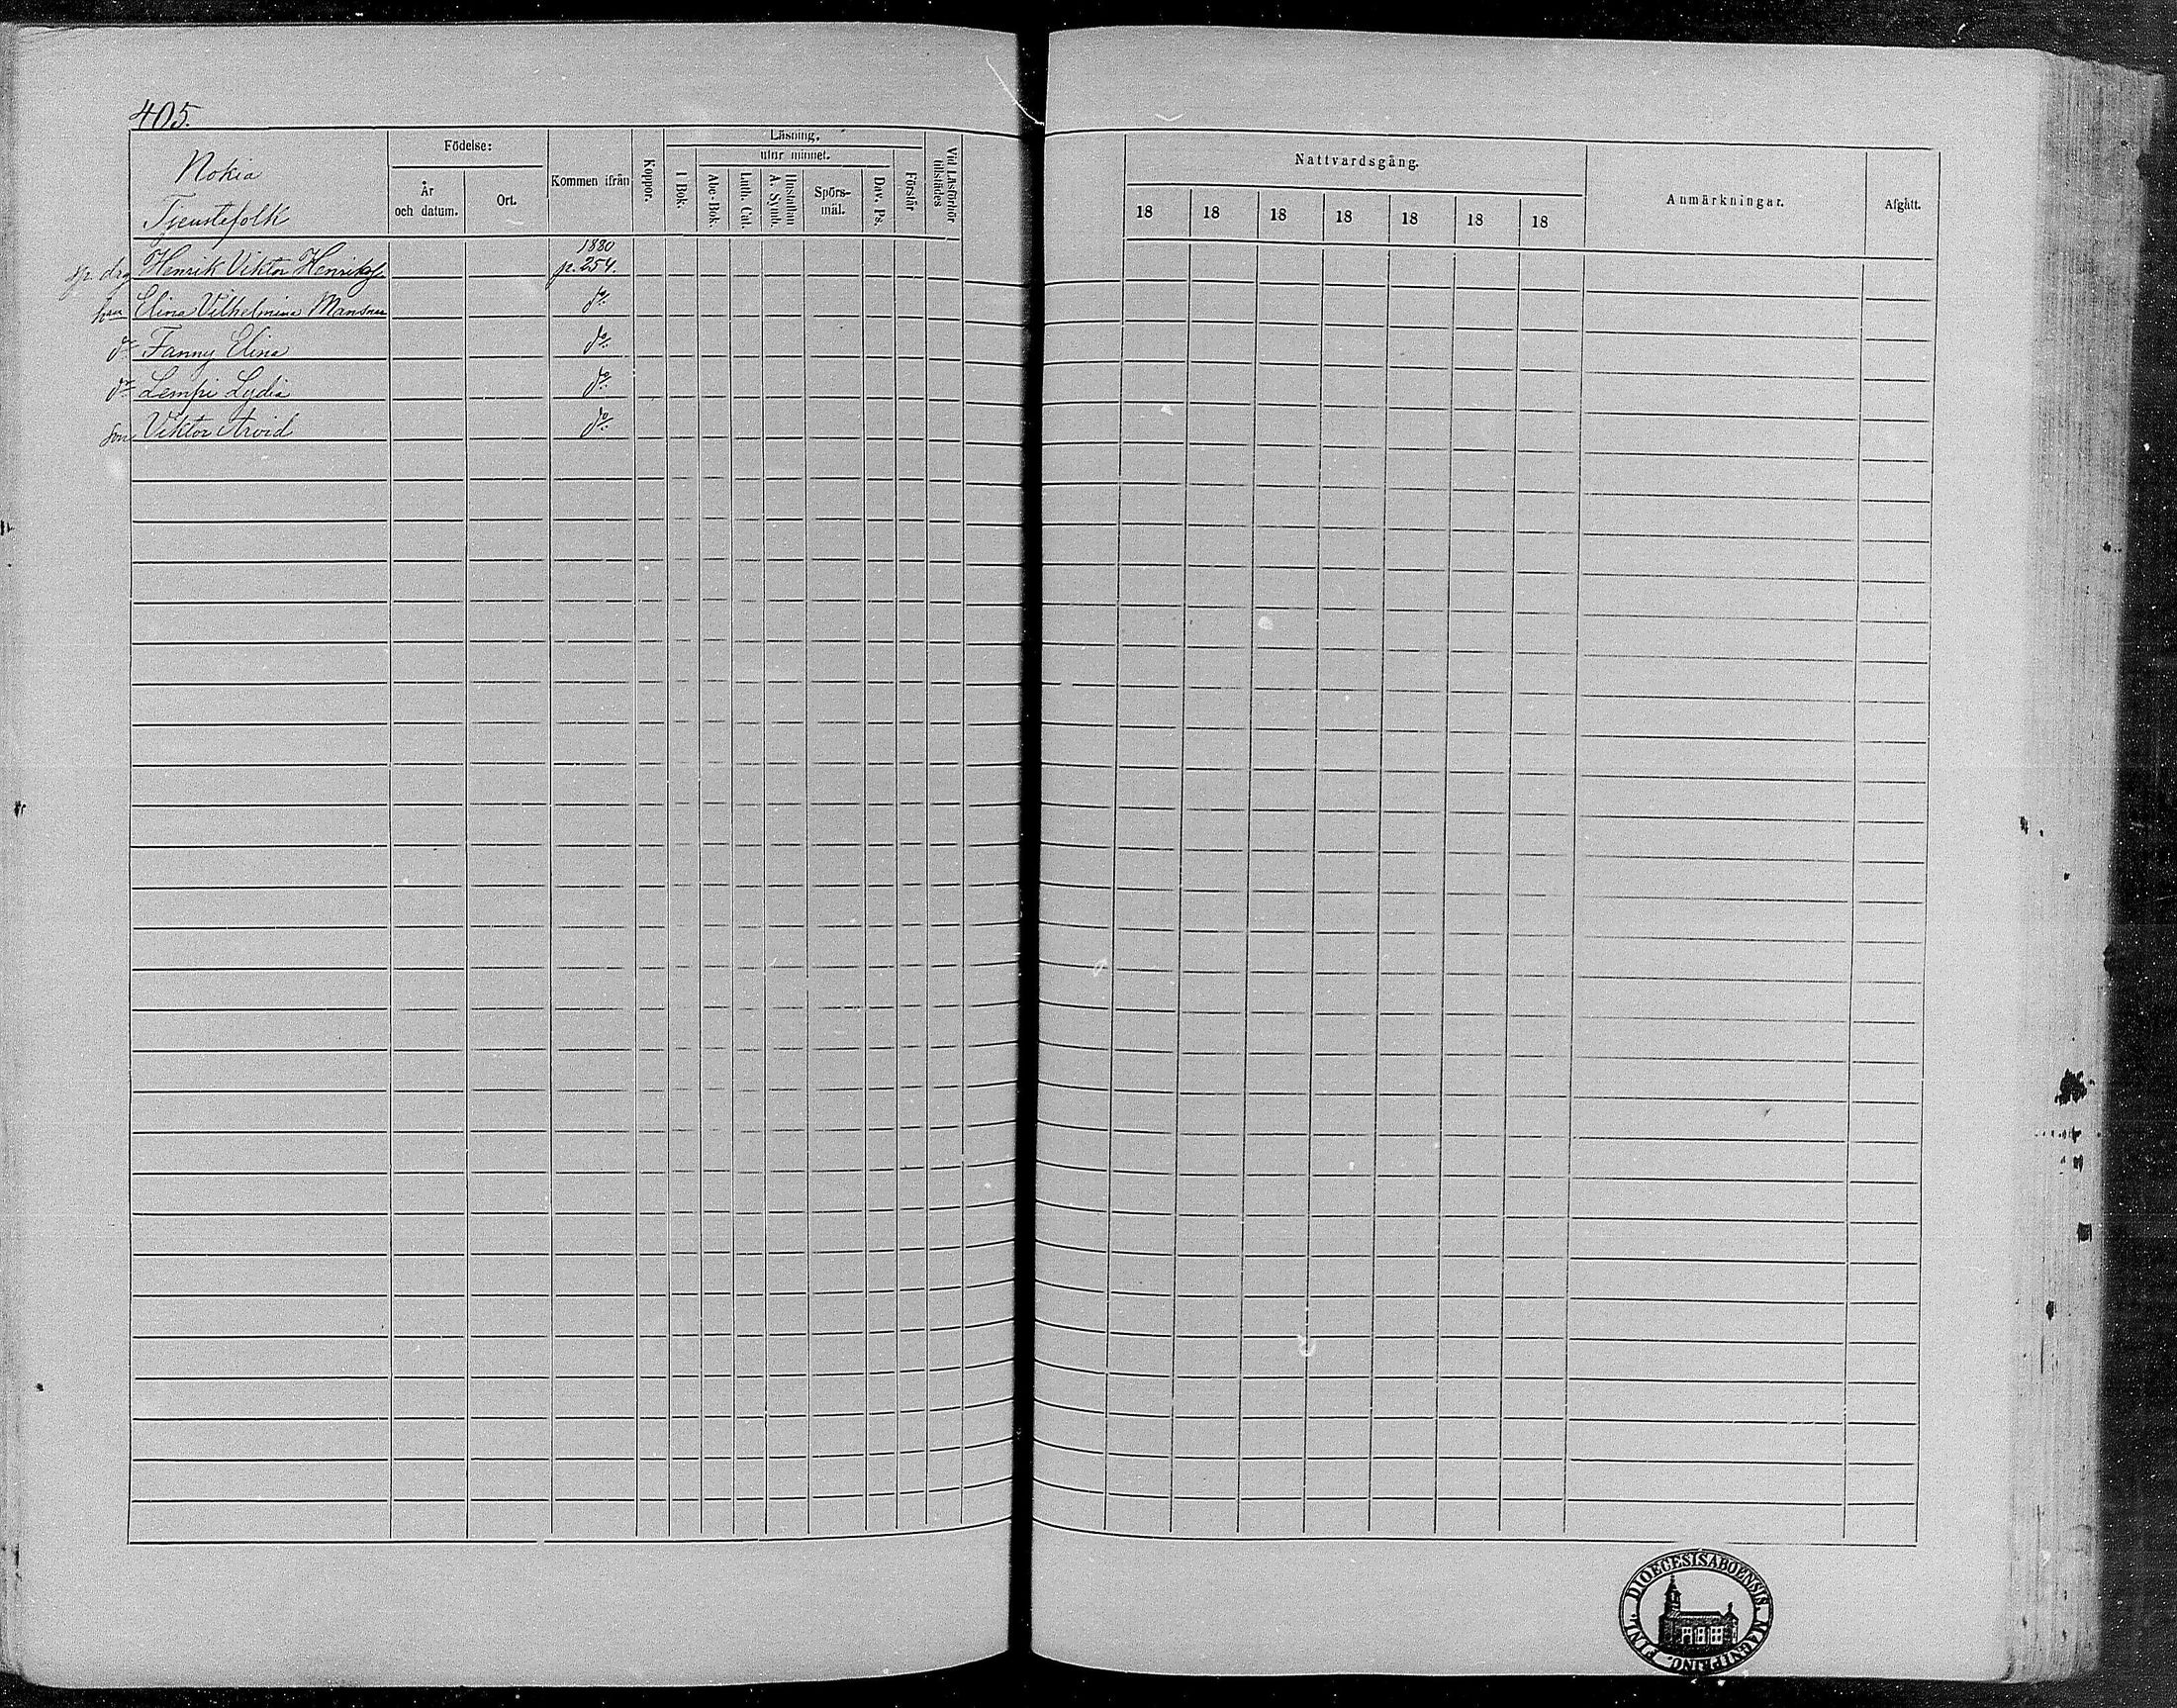 405.
Nokia
Tjenstefolk
Födelse:
År
och datum.
Ort.
Kommen ifrån
Koppor.
Läsning.
utur minnet.
I Bok.
Abc-Bok.
Luth. Cat.
Hustaflan
A. Symb.
Spörs-
mål.
Dav. Ps.
Förstår
Vid Läsförhör
tillstädes
Nattvardsgång.
18 18 18 18 18 18 18
Anmärkningar.
Afgått.
1880
Henrik Viktor p. 254.
Elina Vilhelmina do
Fanny Elina do
Lempi Lydia do
son Viktor Arvid do
DIOECESIS ABOENSIS. MAGNI PRINC. FINL.